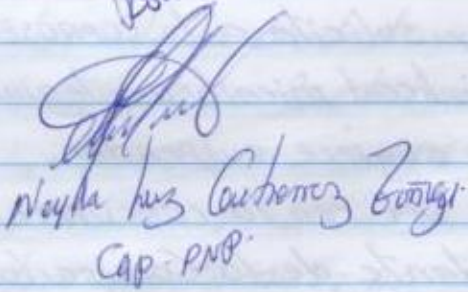 Neyda Luz Gutierrez Zuñiga.
CAP. PNP.